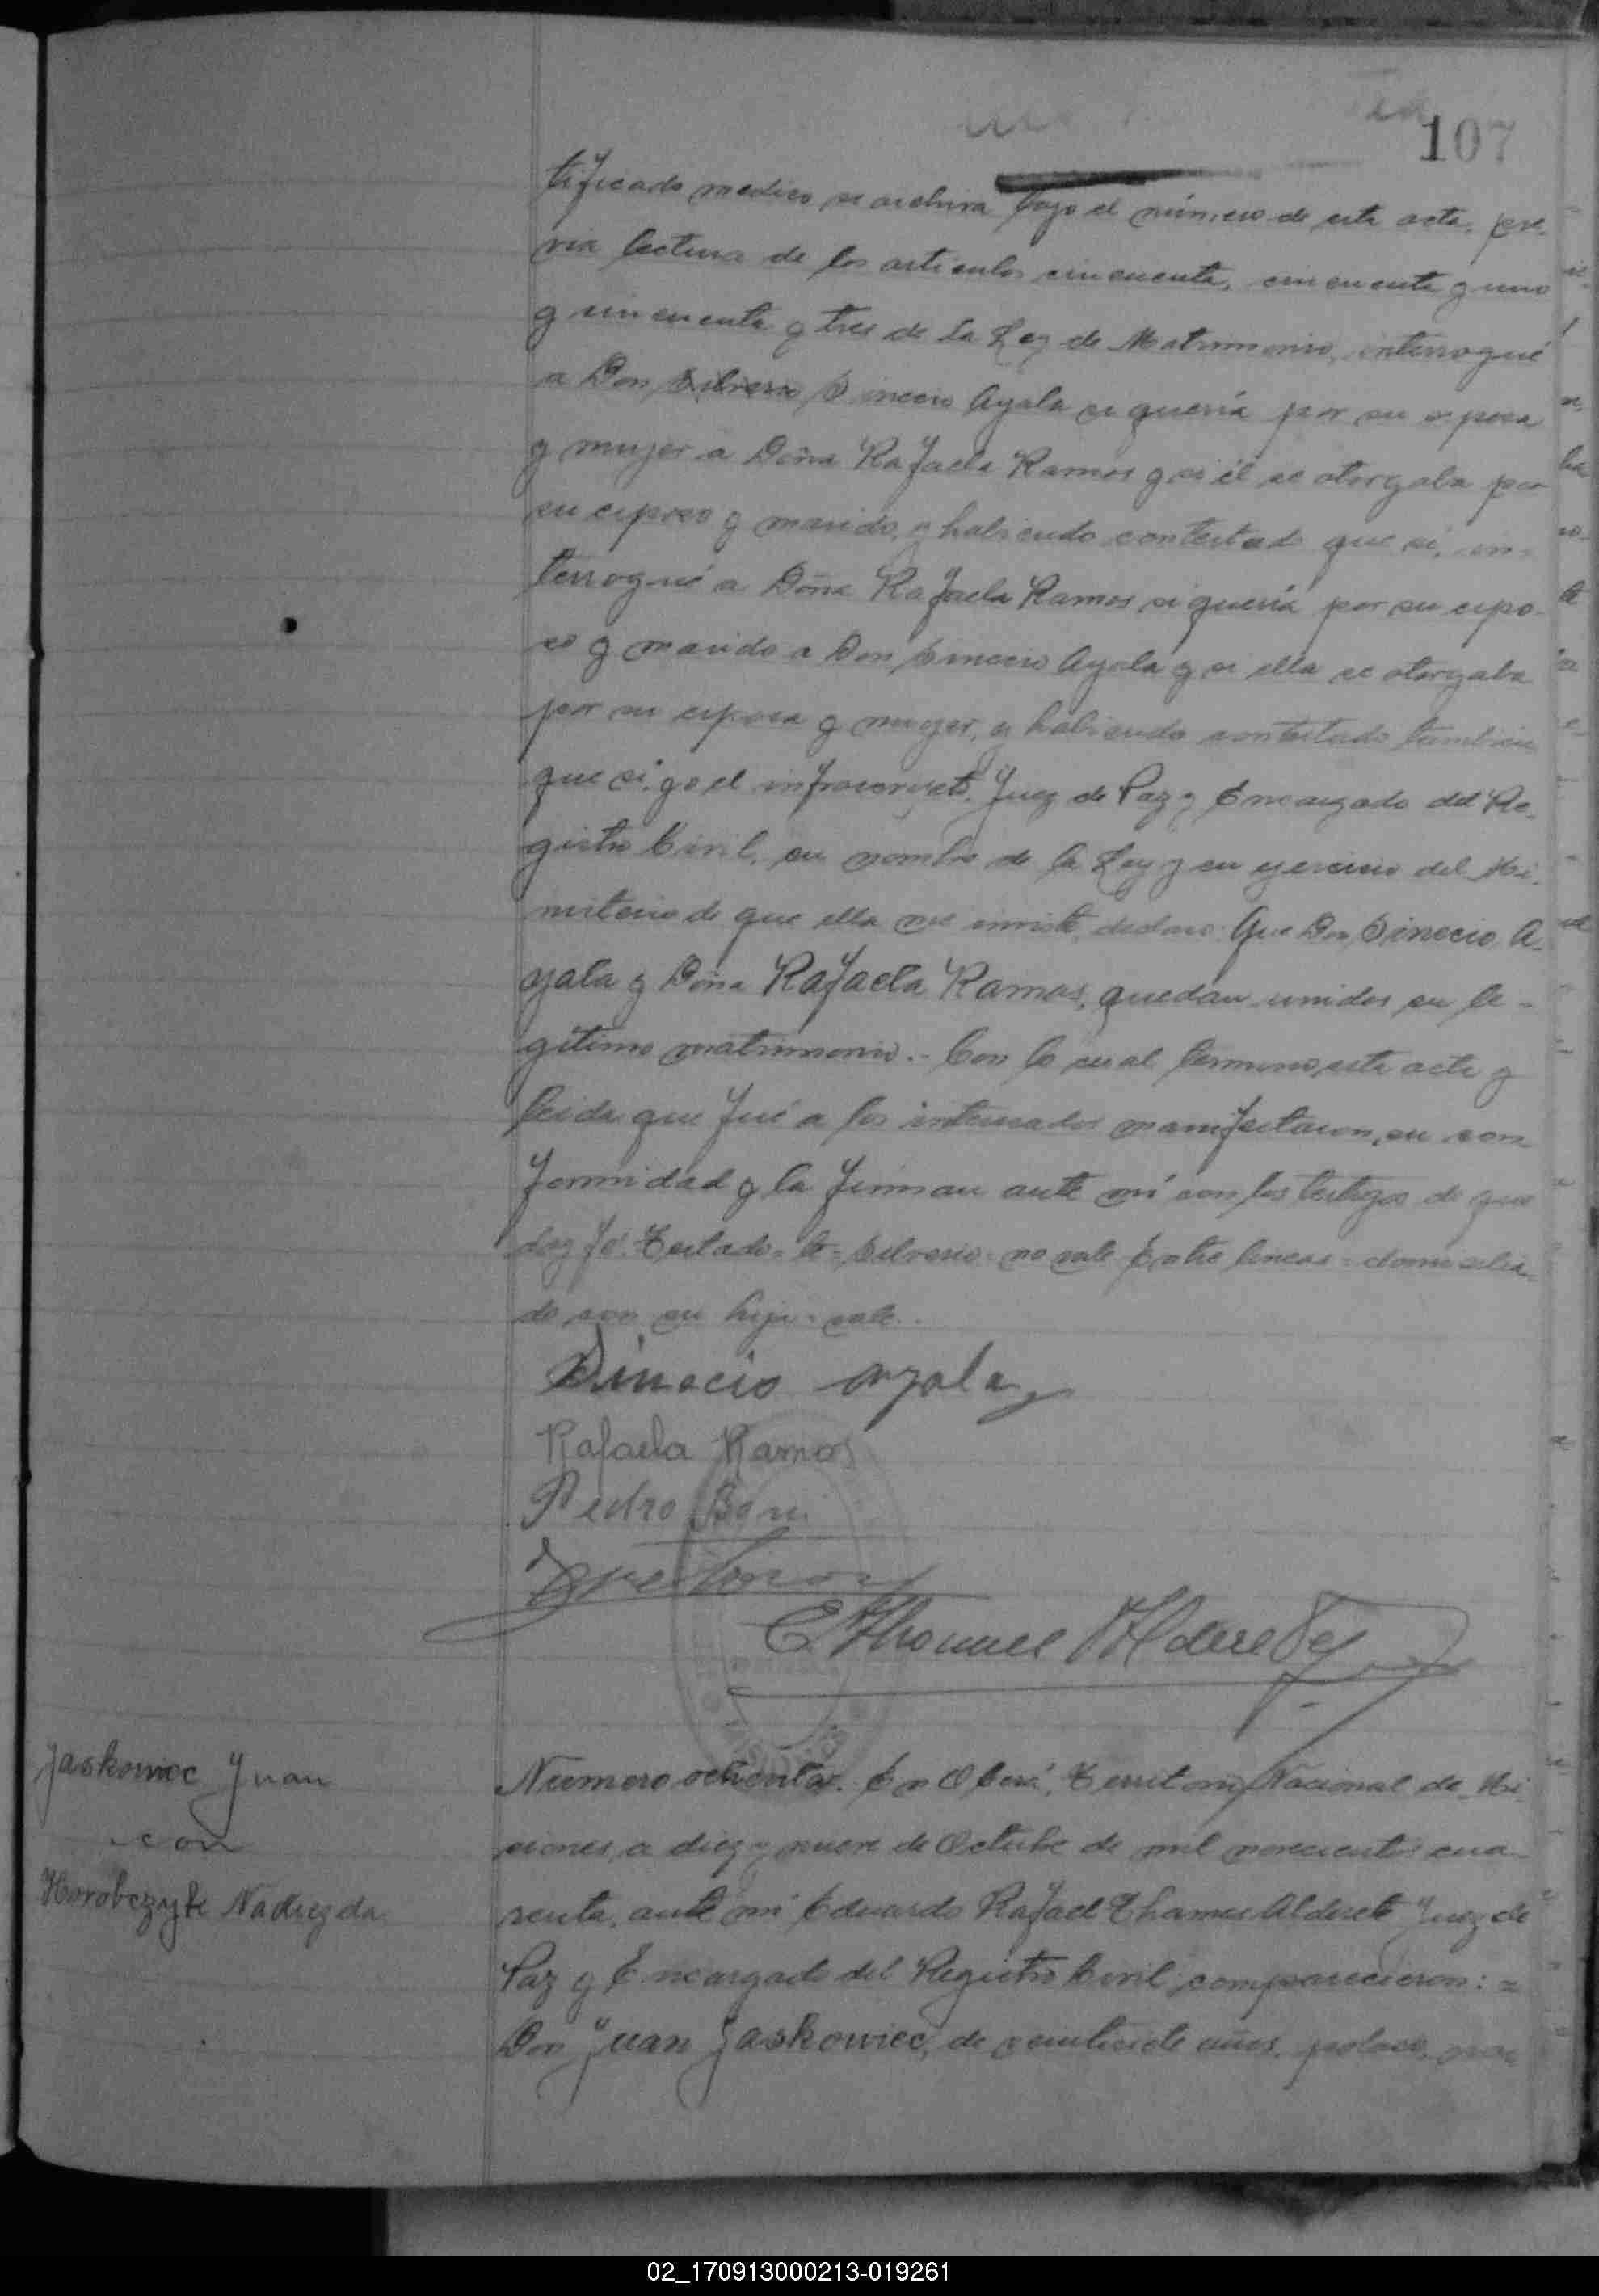 107
tificado medico se archiva bajo el número de esta acta, pre-
via lectura de los articulos cincuenta, cincuenta y uno
y cincuenta y tres de la Ley de Matrimonio, interrogué
a Don Silverio Sinecio Ayala si quería por su esposa
y mujer a Doña Rafaela Ramos y si él se otorgaba por
su esposo y marido, y habiendo contestado que si, in-
terrogué a Doña Rafaela Ramos si quería por su espo-
so y marido a Don Sinecio Ayala y si ella se otorgaba
por su esposa y mujer, y habiendo contestado tambien
que si, yo el infrascripto, Juez de Paz y Encargado del Re-
gistro Civil, en nombre de la Ley y en ejercicio del Mi-
nisterio de que ella me inviste, declaro: Que Don Sinecio A-
yala y Doña Rafaela Ramos, quedan unidos en le-
gítimo matrimonio.- Con lo cual termino esta acta y
leida que fué a los interesados manifestaron su con-
formidad y la firman ante mí con los testigos de que
doy fé. Testado= te= Silverio= no vale Entre lineas= domicilia-
do con su hija= vale.
Sinecio Ayala
Rafaela Ramos
Pedro
E. Thames Alderete
Jaskowiec Juan
con
Horobczyk Nadiezda
Numero ochenta. En Oberá, Territorio Nacional de Mi-
siones, a diez y nueve de Octubre de mil novecientos cua-
renta, ante mí Eduardo Rafael Thames Alderete Juez de
Paz y Encargado del Registro Civil, comparecieron:=
Don Juan Jaskowiec, de veintisiete años, polaco,
02_170913000213-019261